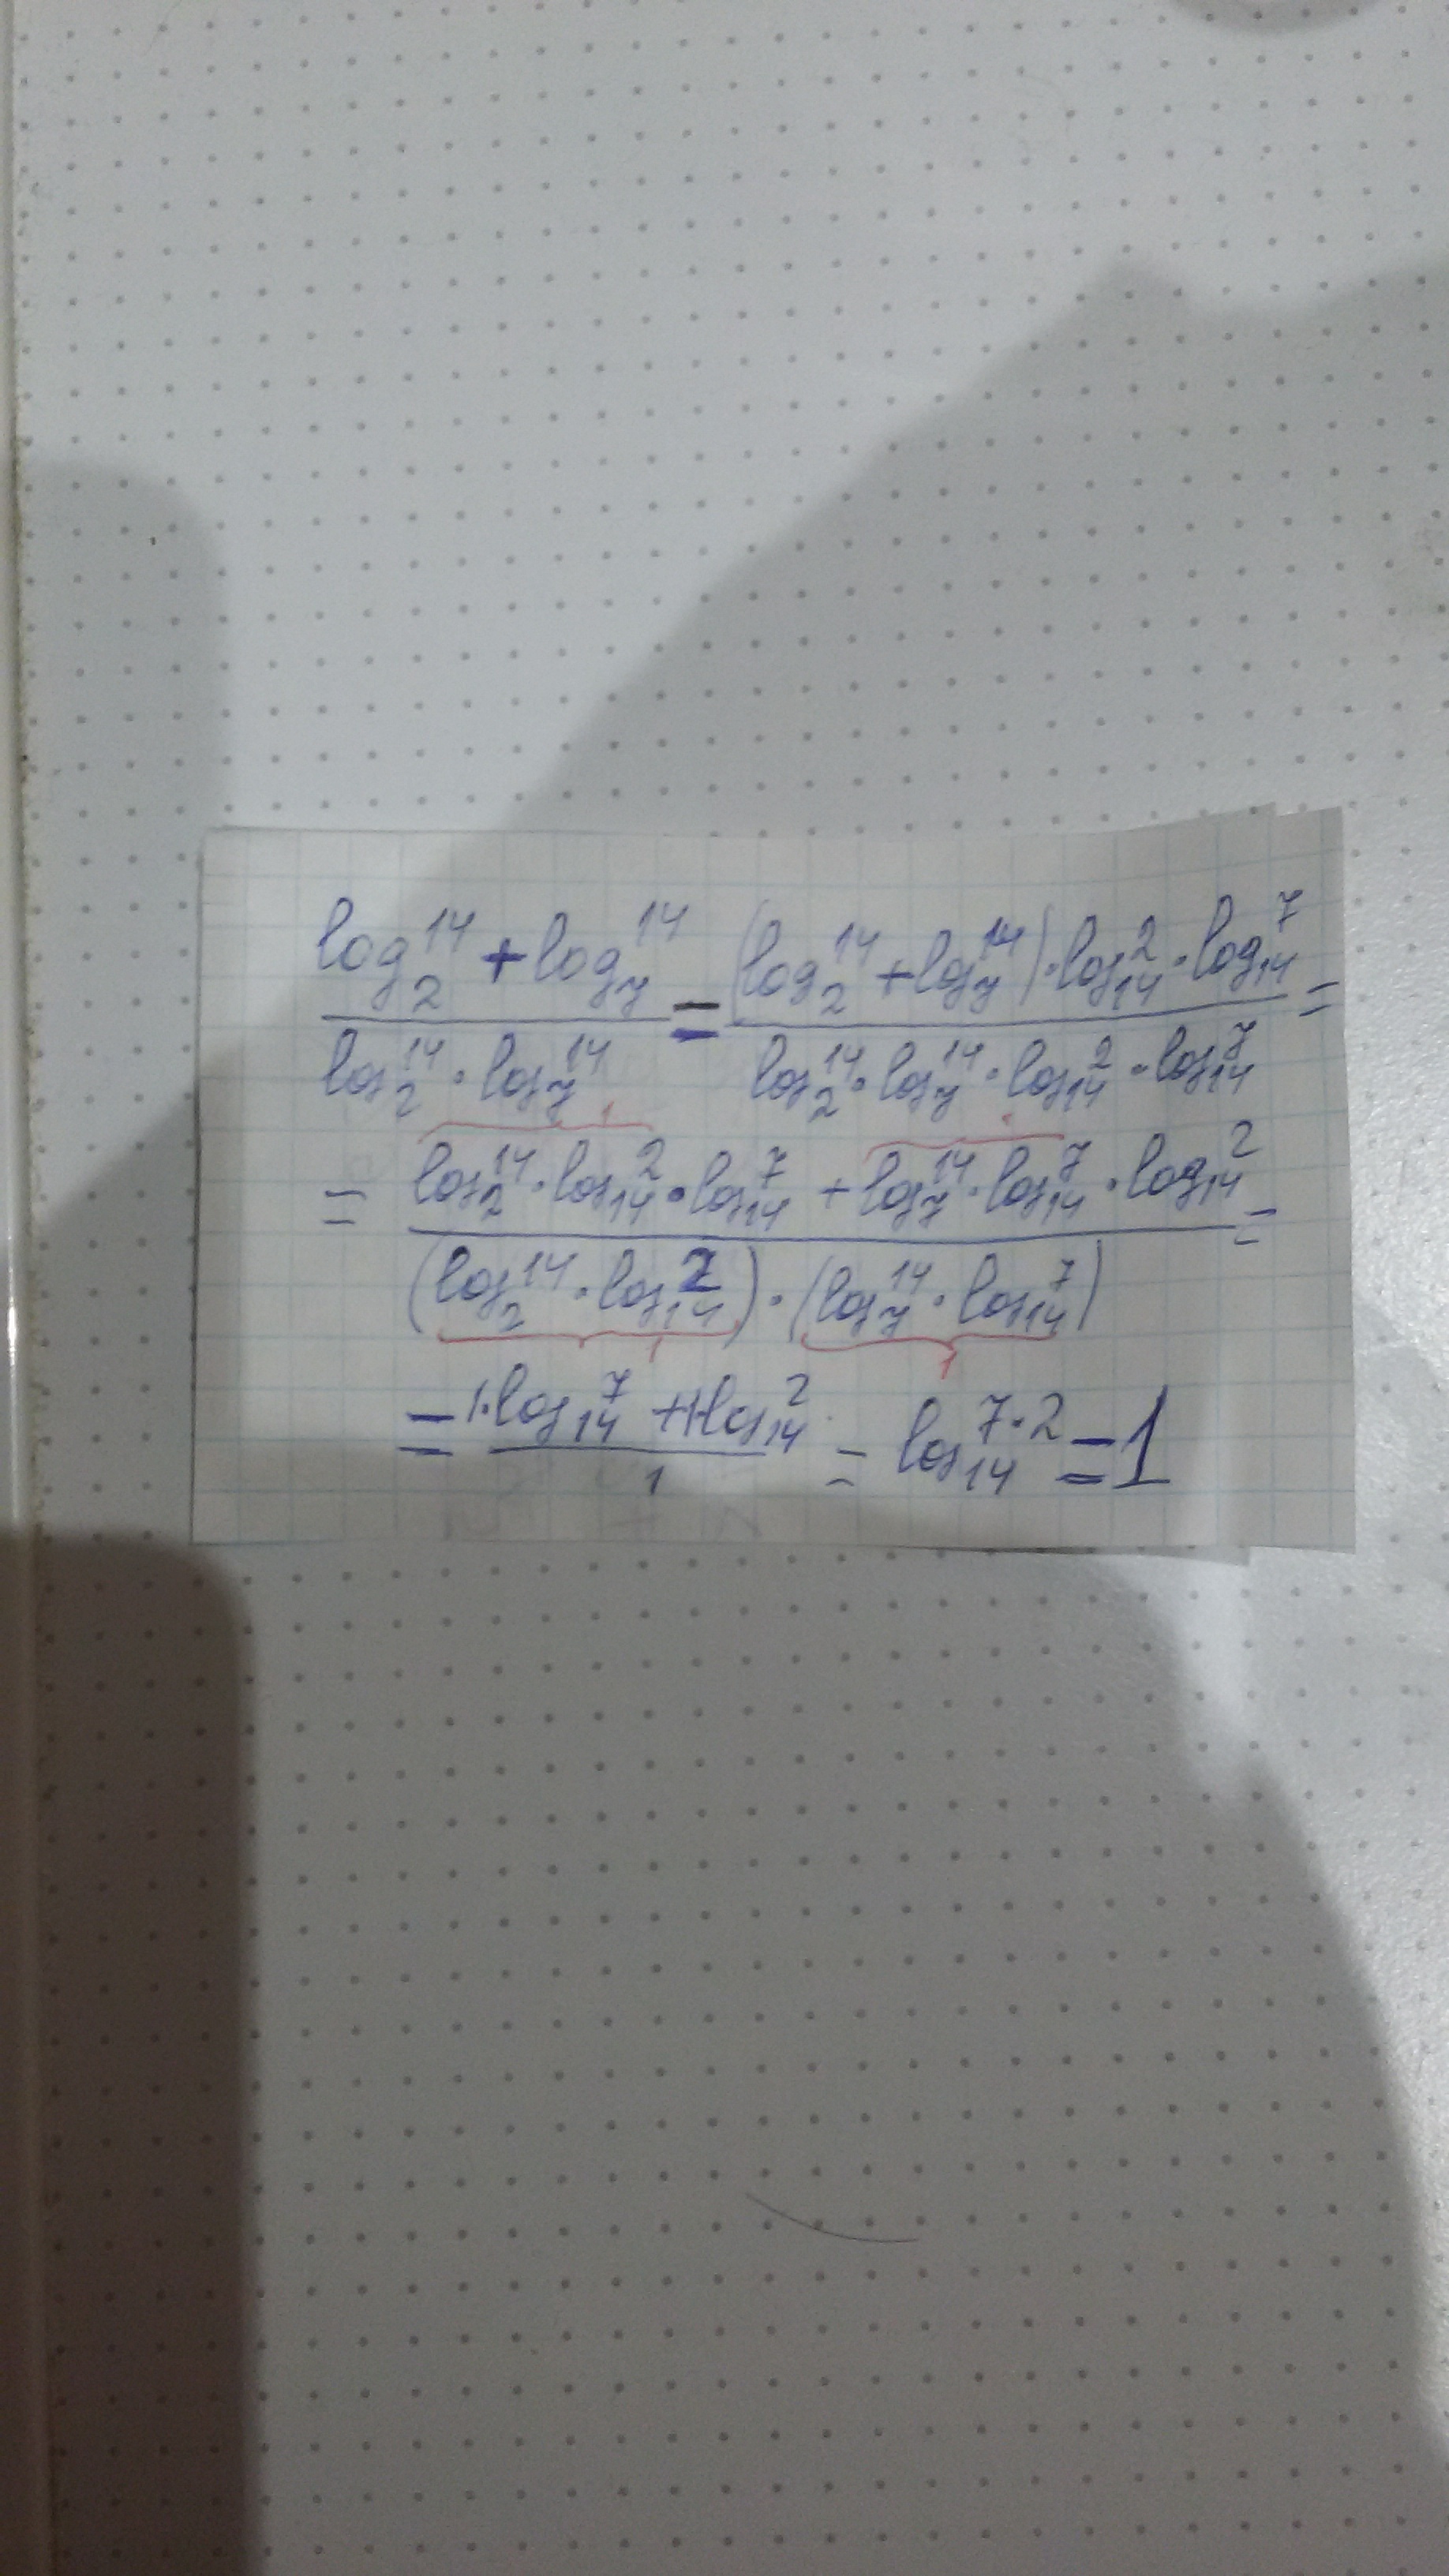 log₂¹⁴ + log₇¹⁴ / log₂¹⁴ · log₇¹⁴ = (log₂¹⁴ + log₇¹⁴) · log₁₄² · log₁₄⁷ / log₂¹⁴ · log₇¹⁴ · log₁₄² · log₁₄⁷ =
1
= log₂¹⁴ · log₁₄² · log₁₄⁷ + log₇¹⁴ · log₁₄⁷ · log₁₄² / (log₂¹⁴ · log₁₄²) · (log₇¹⁴ · log₁₄⁷) =
1 1
= 1·log₁₄⁷ + 1·log₁₄² / 1 = log₁₄⁷·² = 1